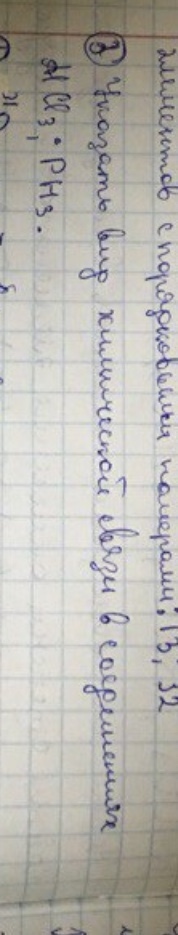 элементов с порядковыми номерами: 13, 32
② Указать вид химической связи в соединениях
AlCl3; PH3.